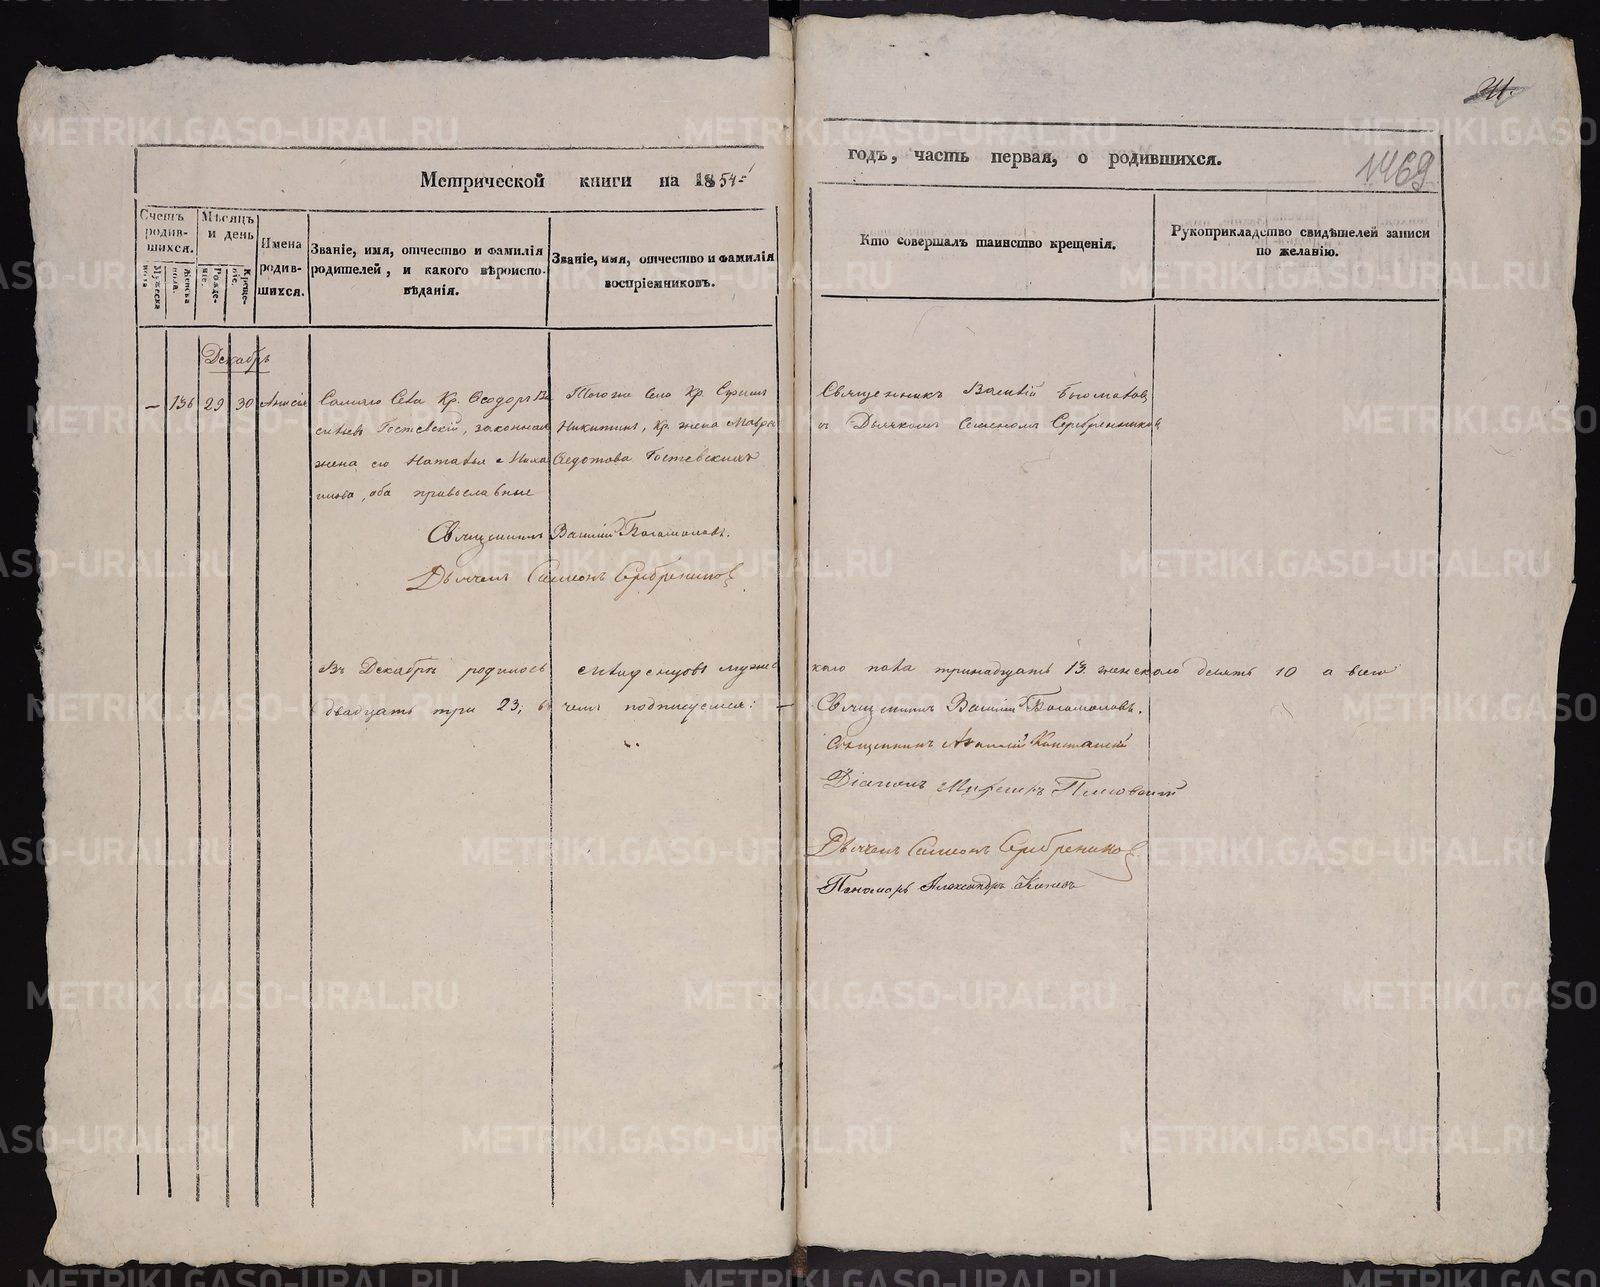 Метрической книги на 1854 =
годъ, часть первая, о родившихся.
1469
Счетъ родив-шихся.
Мужеска пола.
Женска пола.
Мѣсяцъ и день
Рожде-ніе.
Креще-ніе.
Имена родив-шихся.
Званіе, имя, отчество и фамилія
родителей, и какого вѣроиспо-
вѣданія.
Званіе, имя, отчество и фамилія
воспріемниковъ.
Кто совершалъ таинство крещенія.
Рукоприкладство свидѣтелей записи
по желанію.
Декабрь
— 136 29 30 Анисія
Самаго Села Кр. Ѳеодоръ Ва
сильевъ Гостевскій, законная
жена его Наталья
оба православные
Того же Села Кр.
Никитинъ, Кр. жена Мавра
Ѳедотова Гостевскихъ
Священникъ Василій Богомоловъ
и Дьячкомъ Семеномъ Серебренниковъ
Священникъ Василій Богомоловъ.
Дьячекъ Симеонъ Серебрениковъ
Въ Декабрѣ родилось младенцовъ мужес
каго пола тринадцать 13. женскаго десять 10 а всего
двадцать три 23; въ чемъ подписуемся: —
Священникъ Василій Богомоловъ.
Священникъ
Діаконъ
Дьячекъ Симеонъ Серебрениковъ
Пономарь Александръ
METRIKI.GASO-URAL.RU